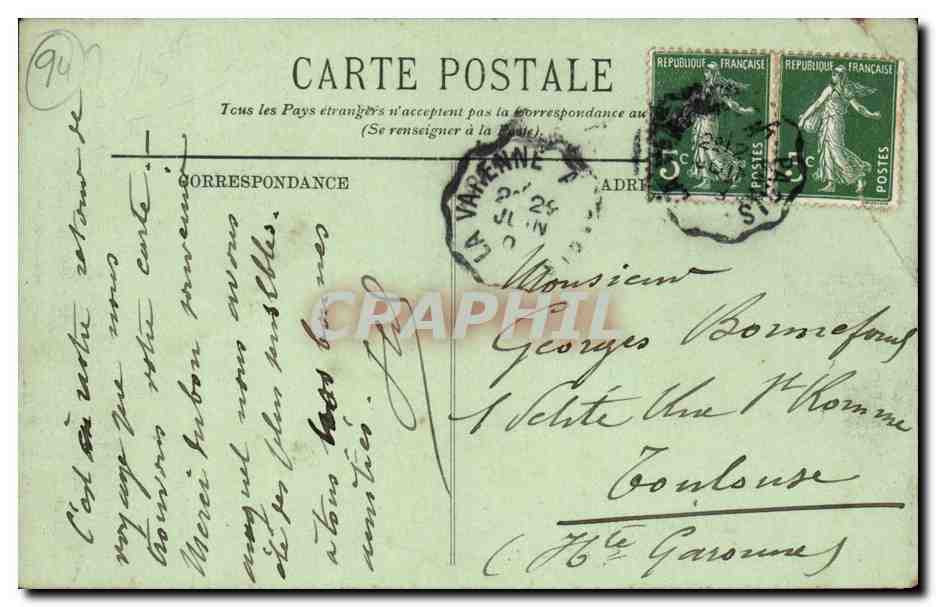 94
CARTE POSTALE
Tous les Pays étrangers n'acceptent pas la Correspondance au
(Se renseigner à la Poste).
CORRESPONDANCE
ADRE
REPUBLIQUE FRANÇAISE
5 c
POSTES
REPUBLIQUE FRANÇAISE
5 c
POSTES
LA VARENNE A
28
JUIN
A PARIS
C'est à notre retour de
voyage que nous
trouvons votre carte.—
Merci du bon souvenir
auquel nous avons
été des plus sensibles.
à tous vos bonnes
amitiés.
Monsieur
Georges Bonnefous
1 Petite Rue St Romme
Toulouse
(Hte Garonne)
CRAPHIL